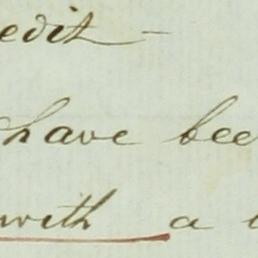 edit -
have bee
with a